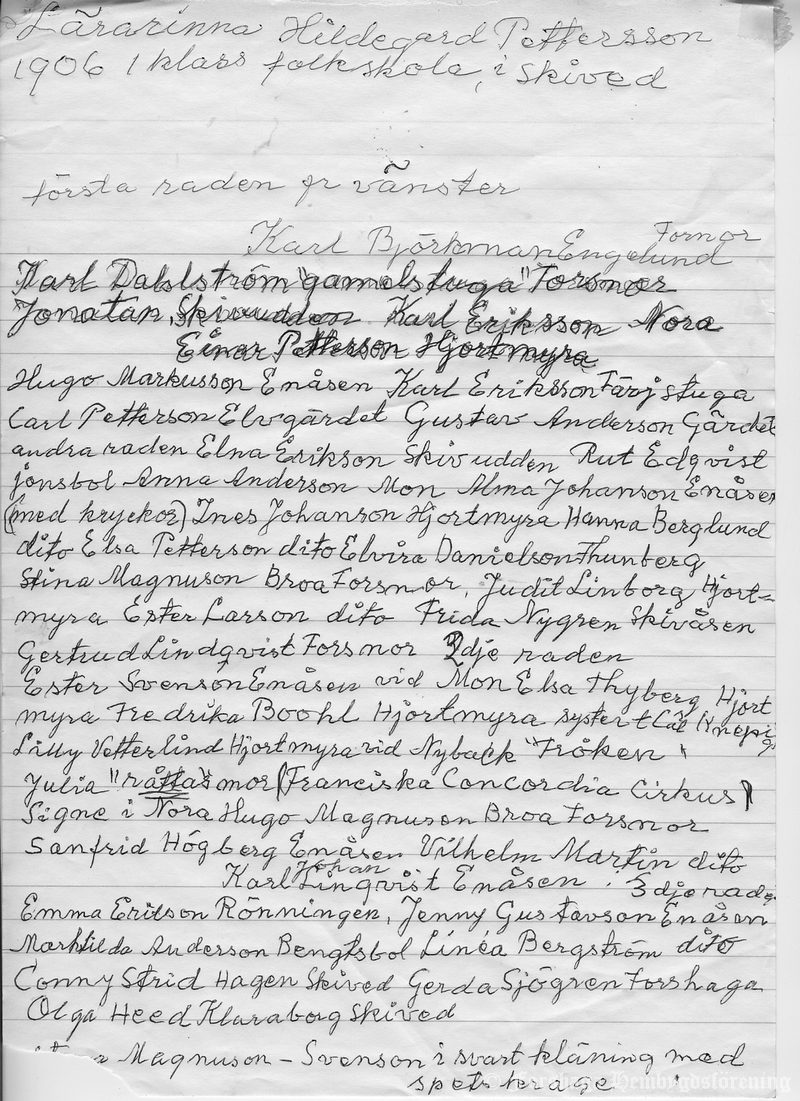 Lärarinna Hildegard Pettersson
1906 1 klass folkskola, i Skived
första raden fr vänster
Fornor
Karl Björkman Engelund
Karl Dahlström "gamelstuga" Forsnor
Jonatan, Skivudden Karl Eriksson Nora
Einar Petterson Hjortmyra
Hugo Markusson Enåsen Karl Eriksson Färjstuga
Carl Petterson Elvgärdet Gustav Anderson Gärdet
andra raden Elna Erikson Skivudden Rut Edqvist
jonsbol Anna Anderson Mon Alma Johanson Enåsen
(med kryckor) Ines Johanson Hjortmyra Hanna Berglund
dito Elsa Petterson dito Elvira Danielson Thunberg
Stina Magnuson Broa Forsnor, Judit Linborg Hjort=
myra Ester Larson dito Frida Nygren Skivåsen
Gertrud Lindqvist Forsnor 2dje raden
Ester Svenson Enåsen vid Mon Elsa Thyberg Hjort
myra Fredrika Boohl Hjortmyra syster t Cal Knepig
Lilly Vetterlind Hjortmyra vid Nybäck "Fröken"
Julia "råttas" mor (Franciska Concordia Cirkus)
Signe i Nora Hugo Magnuson Broa Forsnor
Sanfrid Högberg Enåsen Vilhelm Martin dito
Karl Johan Linqvist Enåsen. 3dje rade
Emma Erikson Rönningen, Jenny Gustavson Enåsen
Marthilda Anderson Bengtsbol Linéa Bergström dito
Conny Strid Hagen Skived Gerda Sjögren Forshaga
Olga Heed Klaraborg Skived
Magnuson - Svenson i svart kläning med
spets krage
Hembygdsförening